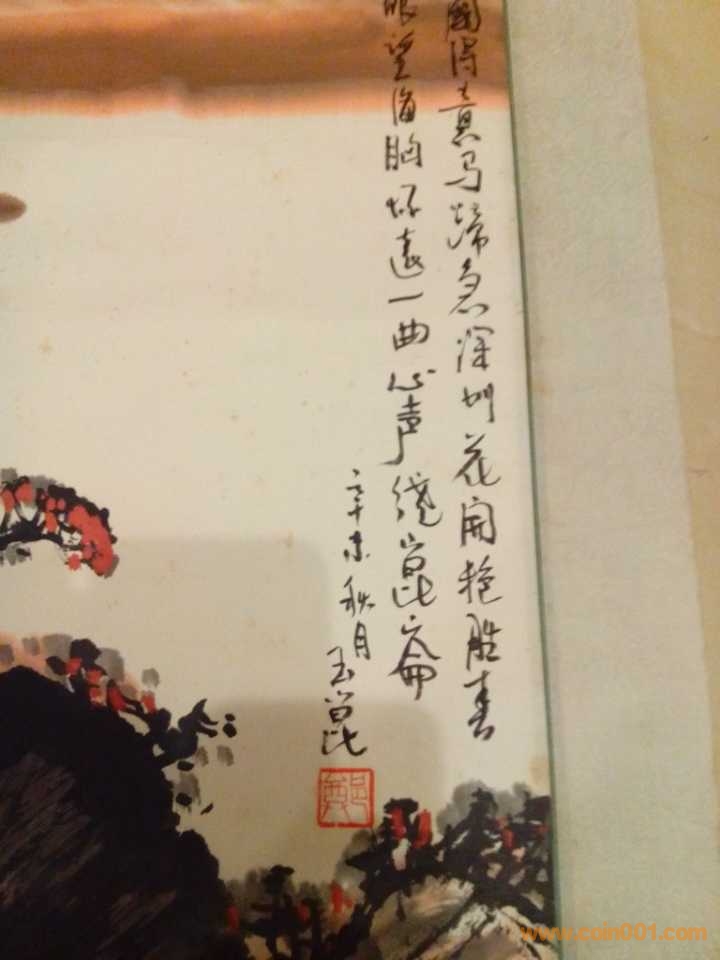 國得真马蹄急深圳花开艳胜春
眼望海胸怀远一曲心声绕崑崙
辛未秋月
玉崑
鄭
www.zuin001.com